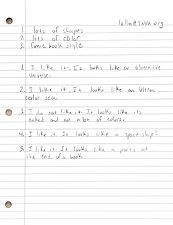 1. lots of shapes
2. lots of color
3. Comic book style
1. I like it. It looks like an alternitive
universe.
2. I like it. It looks like an
color
3. I do not like it. It looks like its
naked and not a lot of colors.
4. I like it. It looks like a space ship!
5. I like it. It looks like a parts at
the end of a book.